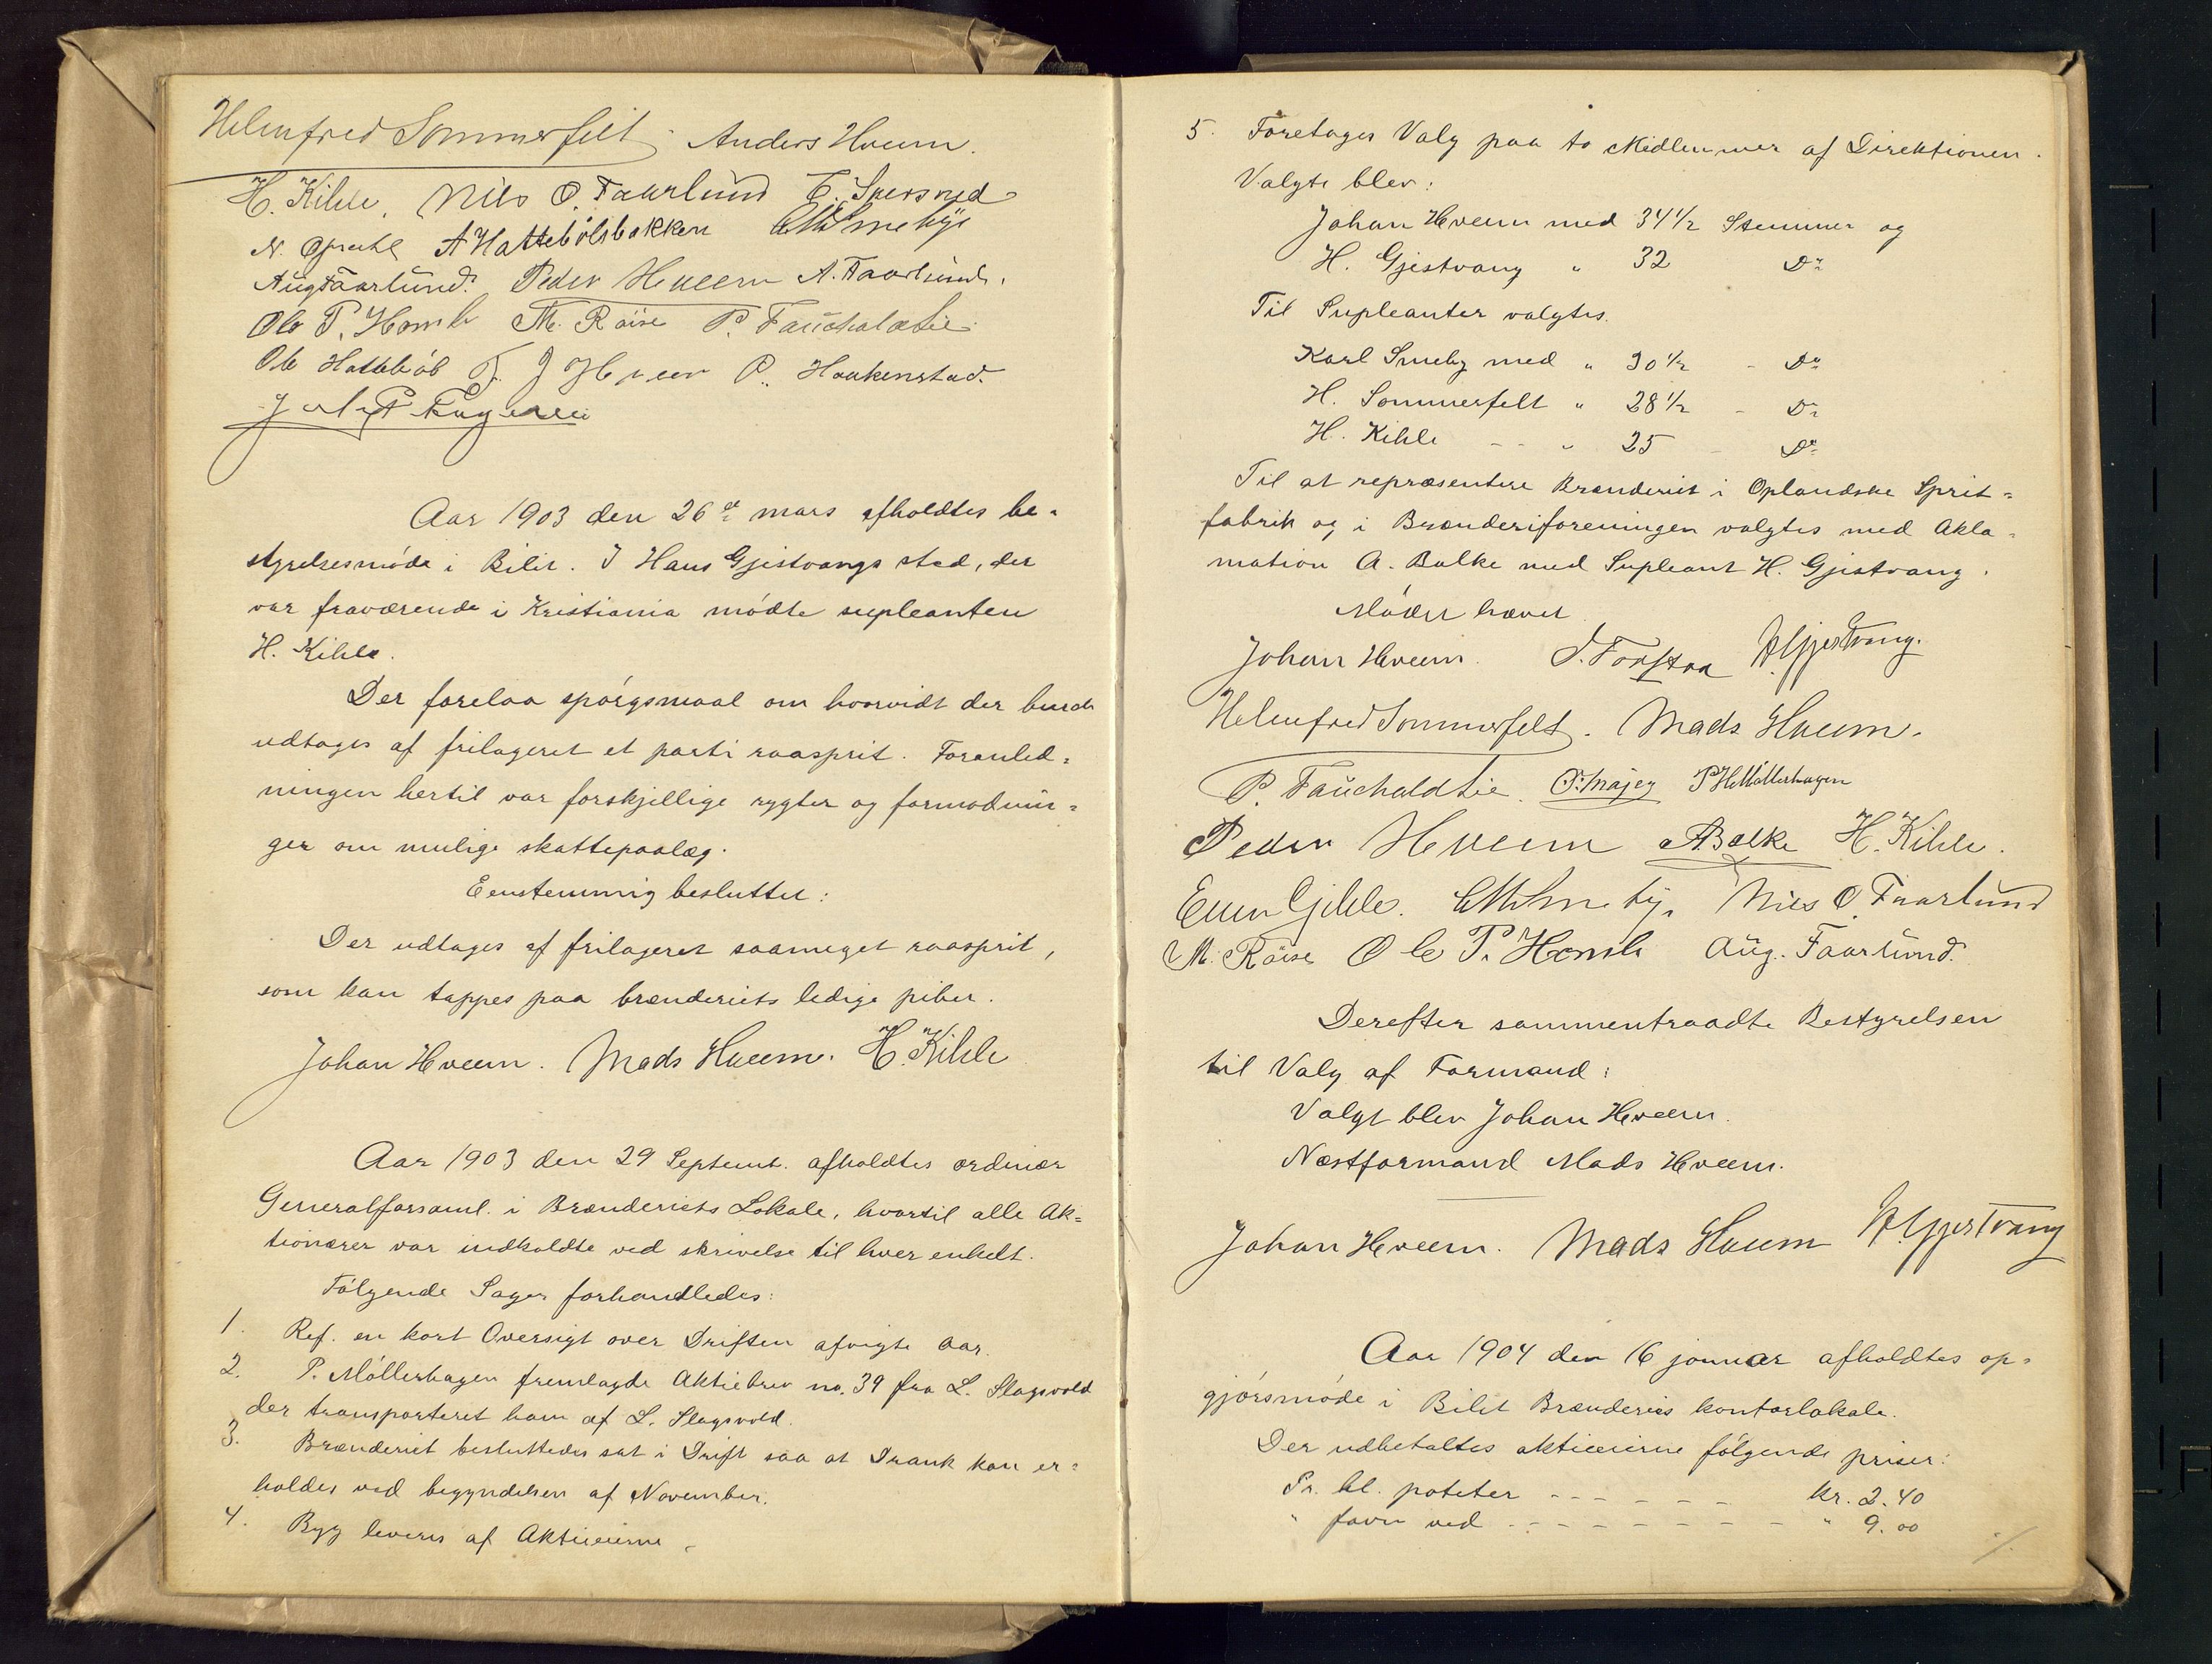 Helmfred Sommerfelt Anders Hveem.
H. Kihle. Nils O. Faarlund
N. A Hattebölsbakken
Aug Faarlund. Peder Hveem A. Faarlund.
Ole P. Homb M. Röise P. Fauchaldeie
Ole Hattebøl J Hveem P. Haakenstad.
Aar 1903 den 26de mars afholdtes be-
styrelsesmöde i Bilit. I Hans Gjestvangs sted, der
var fraværende i Kristiania mödte supleanten
H. Kihle.
Der forelaa spörgsmaal om hvorvidt der burde
udtages af frilageret et parti raasprit. Foranled-
ningen hertil var forskjellige rygter og formodnin-
ger om mulige skattepaalæg.
Eenstemmig besluttet:
Der udtages af frilageret saameget raasprit,
som kan tappes paa brænderiets ledige piber.
Johan Hveem. Mads Hveem. H. Kihle
Aar 1903 den 29 Septemb. afholdtes ordinær
Generalforsaml. i Brænderiets Lokale, hvortil alle Ak-
tionærer var indkaldte ved skrivelse til hver enkelt.
Fölgende Sager forhandledes:
1. Ref. en kort Oversigt over Driften afvigte Aar.
2. P. Möllerhagen fremlagde Aktiebrev no. 39 fra L. Slagsvold
der transporteret ham af L. Slagsvold.
3. Brænderiet besluttedes sat i Drift saa at Drank kan er-
holdes ved begyndelsen af November.
4. Byg leveres af Aktieeierne.
5. Foretages Valg paa to Medlemmer af Direktionen.
Valgte blev:
Johan Hveem med 34 1/2 Stemmer og
H. Gjestvang " 32 Do
Til Supleanter valgtes.
Karl Smeby med " 30 1/2 - Do
H. Sommerfelt " 28 1/2 - Do
H. Kihle - - " 25 - Do
Til at repræsentere Brænderiet i Oplandske Sprit-
fabrik og i Brænderiforeningen valgtes med Akla-
mation A. Balke med Supleant H. Gjestvang.
Mödet hævet
Johan Hveem. H Gjestvang.
Helmfred Sommerfelt. Mads Hveem.
P. Fauchaldeie. P H Möllerhagen
Peder Hveem A Balke H. Kihle.
Even Gihle. Nils O. Faarlund
M. Röise Ole P. Homb Aug. Faarlund.
Derefter sammentraadte Bestyrelsen
til Valg af Formand:
Valgt blev Johan Hveem.
Næstformand Mads Hveem.
Johan Hveem. Mads Hveem H Gjestvang
Aar 1904 den 16 januar afholdtes op-
gjörsmöde i Bilit Brænderies kontorlokale.
Der udbetaltes aktieeierne fölgende priser:
Pr. hl. poteter - - - - - - kr. 2.40
" favn ved - - - - - - - - " 9.00